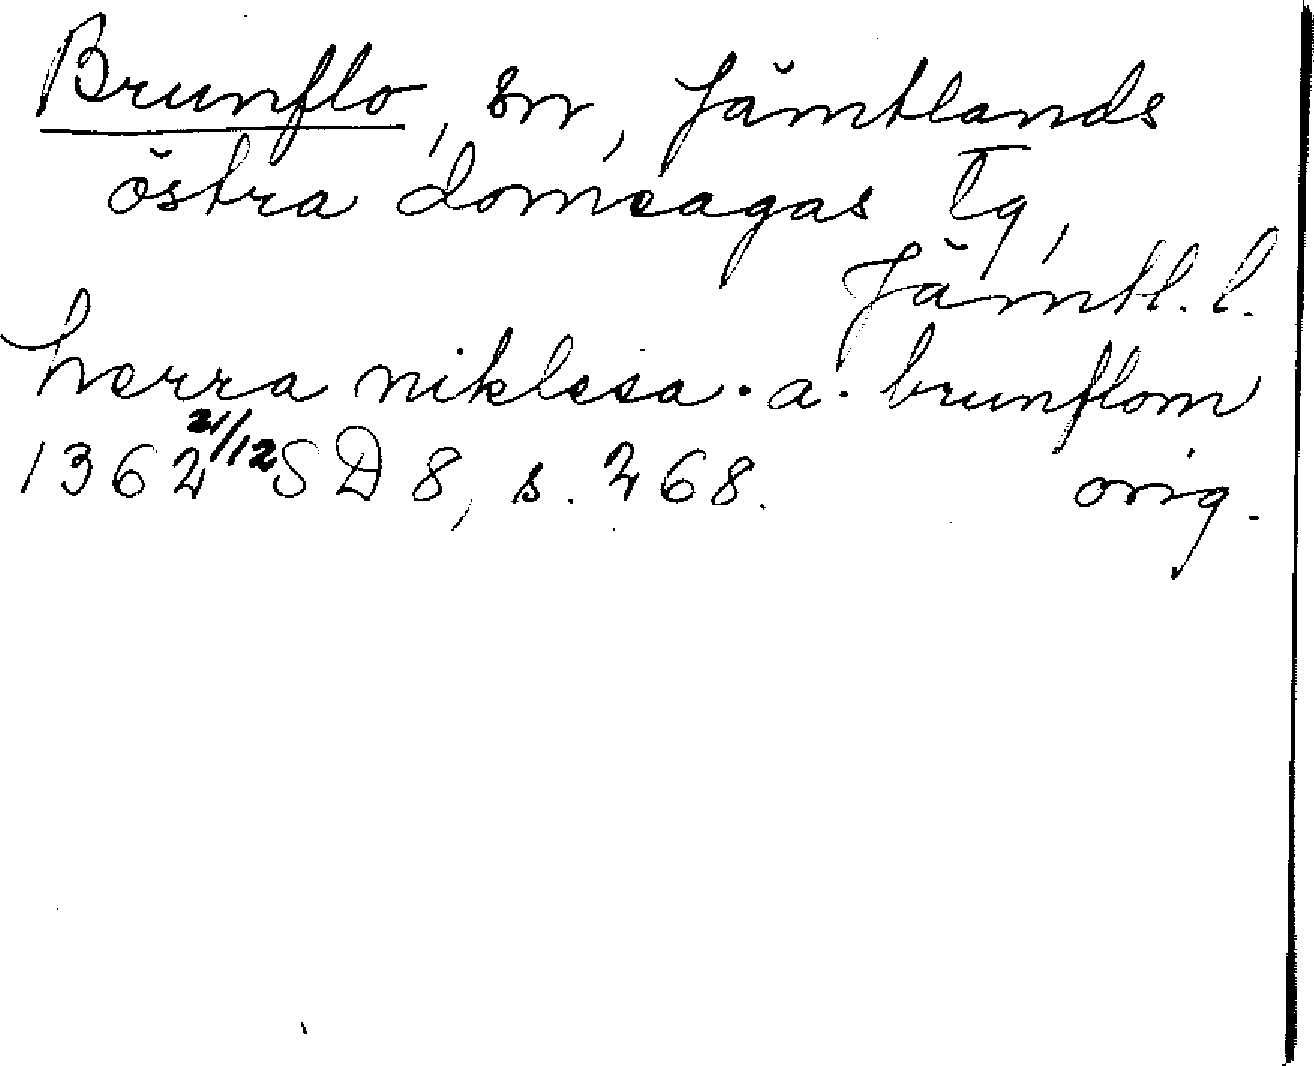 Brunflo, sn, Jämtlands
östra domsagas Tg,
Jämtl. l.
herra niklesa · a · brunflom
1362 21/12 SD 8, s. 268. orig.